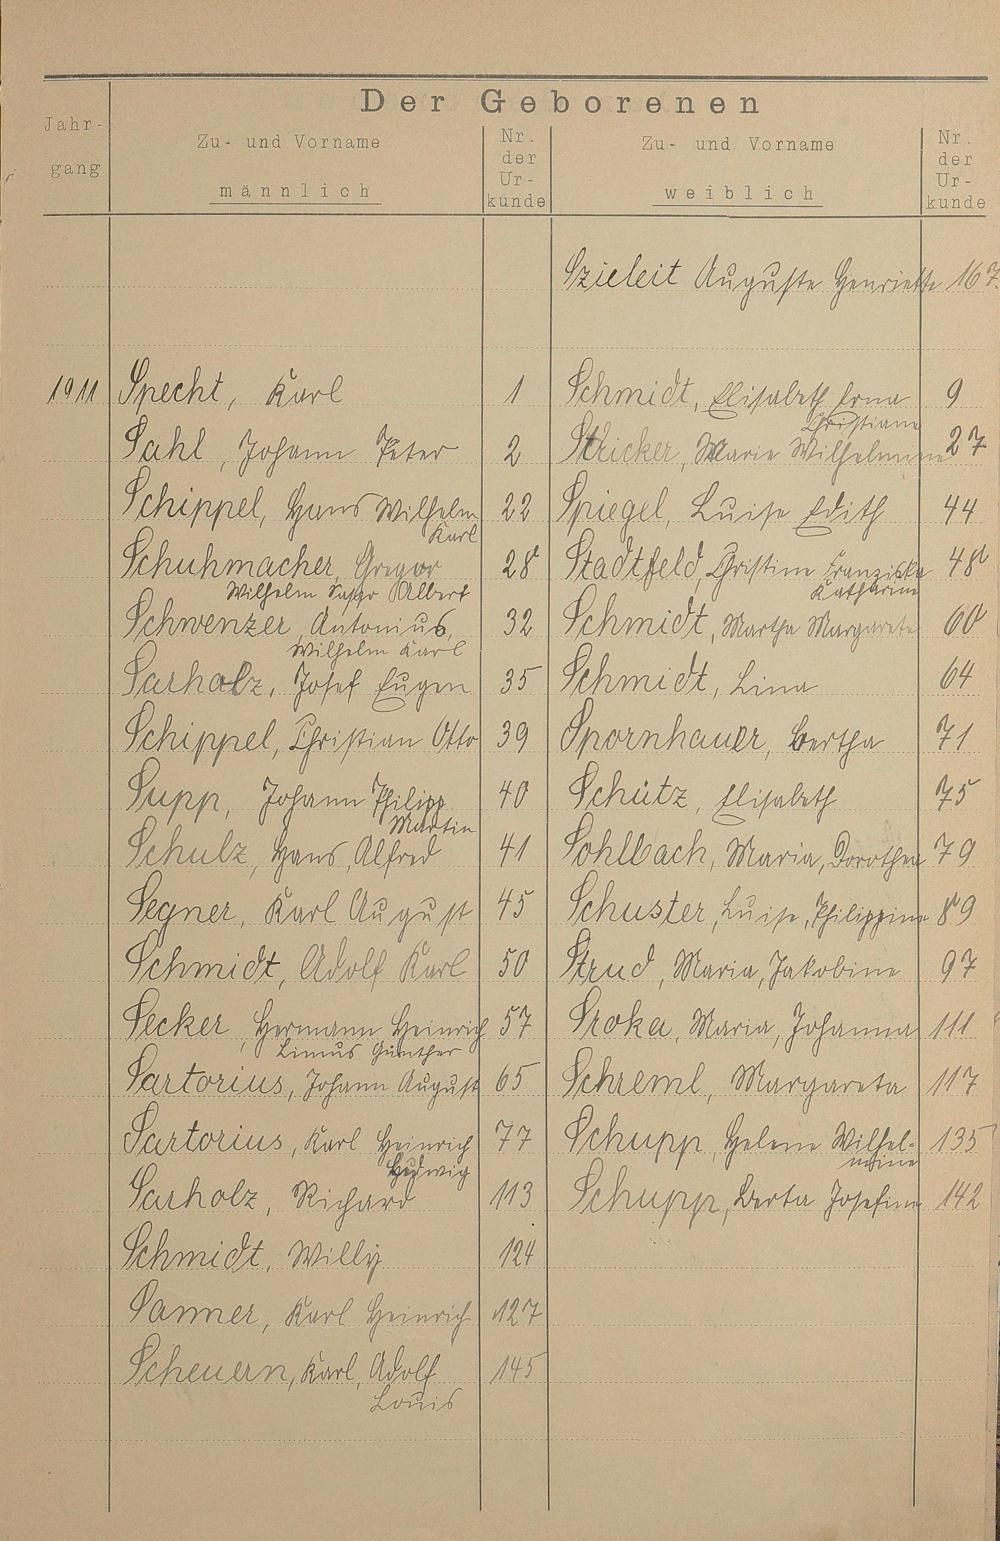 Der Geborenen
Jahr-
gang
Zu- und Vorname
männlich
Nr.
der
Ur-
kunde
Zu- und Vorname
weiblich
Nr.
der
Ur-
kunde
Szieleit Auguste Henriette 167.
1911 Specht, Karl 1 Schmidt, Elisabeth Erna 9
Christiane
Sahl, Johann Peter 2 Stricker, Marie Wilhelmine 27
Schippel, Hans Wilhelm 22 Spiegel, Luise Edith 44
Karl
Schuhmacher, Gregor 28 Stadtfeld, Christine Franziska 48
Wilhelm Albert Katharine
Schwenzer, Antonius, 32 Schmidt, Martha Margarete 60
Wilhelm Karl
Sarholz, Josef Eugen 35 Schmidt, Lina 64
Schippel, Christian Otto 39 Spornhauer, Bertha 71
Supp, Johann Philipp 40 Schütz, Elisabeth 75
Martin
Schulz, Hans, Alfred 41 Sohlbach, Maria, Dorothea 79
Segner, Karl August 45 Schuster, Luise, Philippine 89
Schmidt, Adolf Karl 50 Strud, Maria, Jakobine 97
Secker, Hermann Heinrich 57 Sroka, Maria, Johanna 111
Linus Günther
Sartorius, Johann August 65 Schreml, Margareta 117
Sartorius, Karl Heinrich 77 Schupp, Helene Wilhel- 135
Ludwig mine
Sarholz, Richard 113 Schupp, Berta Josefine 142
Schmidt, Willy 124
Sanner, Karl Heinrich 127
Scheuern, Karl, Adolf 145
Louis